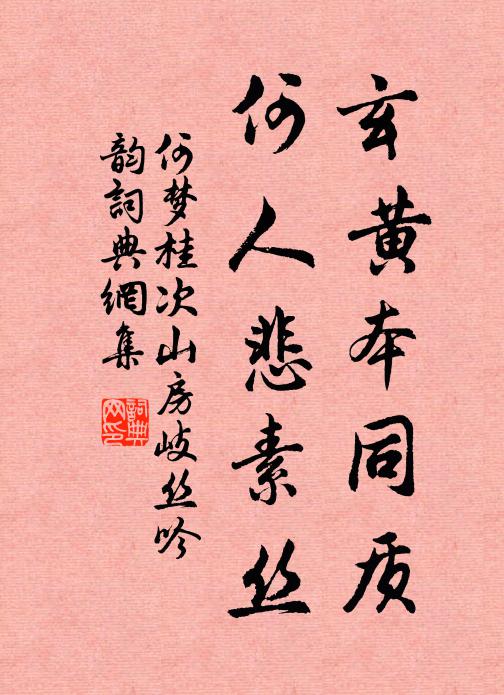 玄黄本同质
何人悲素丝
何梦桂次山房岐丝吟
韵词典網集
詞典網印